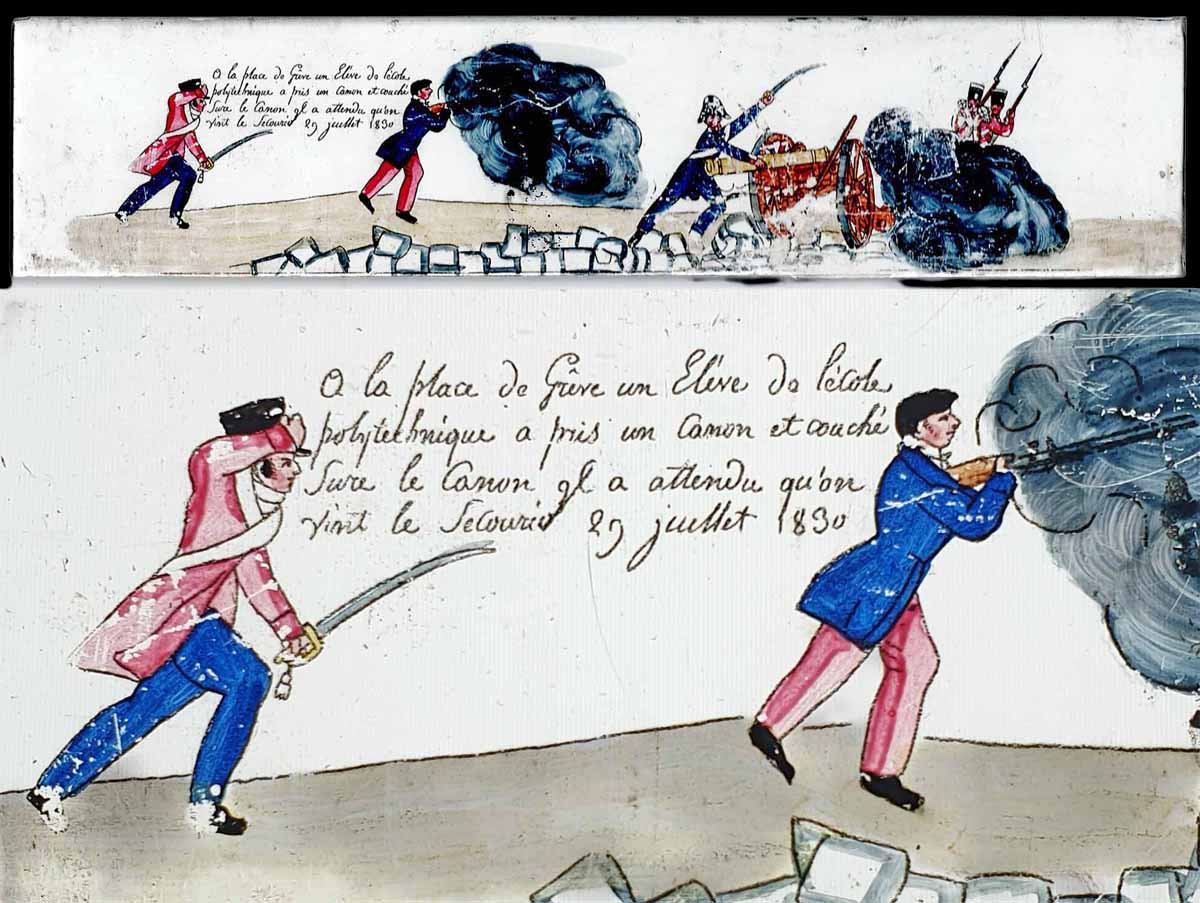 A la place de Grêve un Elève de lécole
polytechnique a pris un Canon et couché
Sure le Canon il a attendu qu'on
vint le Secourir 29 juillet 1830
A la place de Grêve un Elève de lécole
polytechnique a pris un Canon et couché
Sure le Canon il a attendu qu'on
vint le Secourir 29 juillet 1830